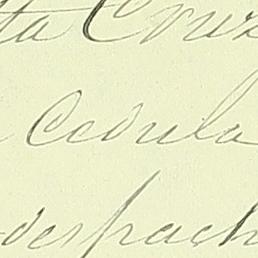 ta Cruz
Cedula
despach